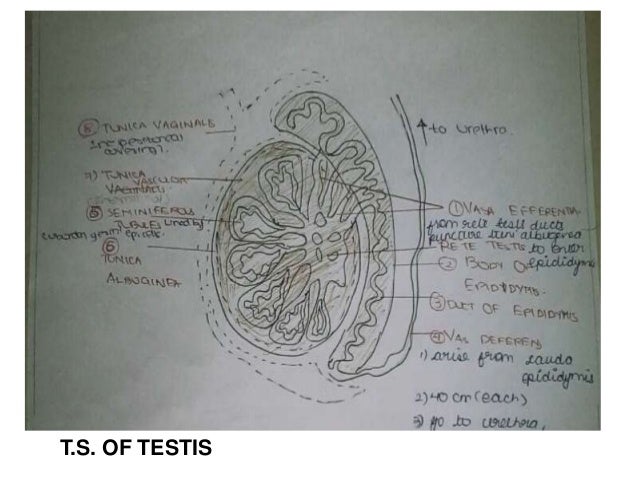 ⑧ TUNICA VAGINALIS
covering).
7) TUNICA
VASCULOR
⑤ SEMINIFEROUS
TUBULES lined by
⑥
TUNICA
ALBUGINEA
↑ to Urethra.
① VASA EFFERENTIA
from rete testi ducts
puncture albuginea
RETE TESTIS to enter
② BODY OF epididymis
EPIDIDYMIS.
③ DUCT OF EPIDIDYMIS
④ VAS DEFERENS
1) arise from cauda
epididymis
2) 40 cm (each)
3) go to urethra,
T.S. OF TESTIS